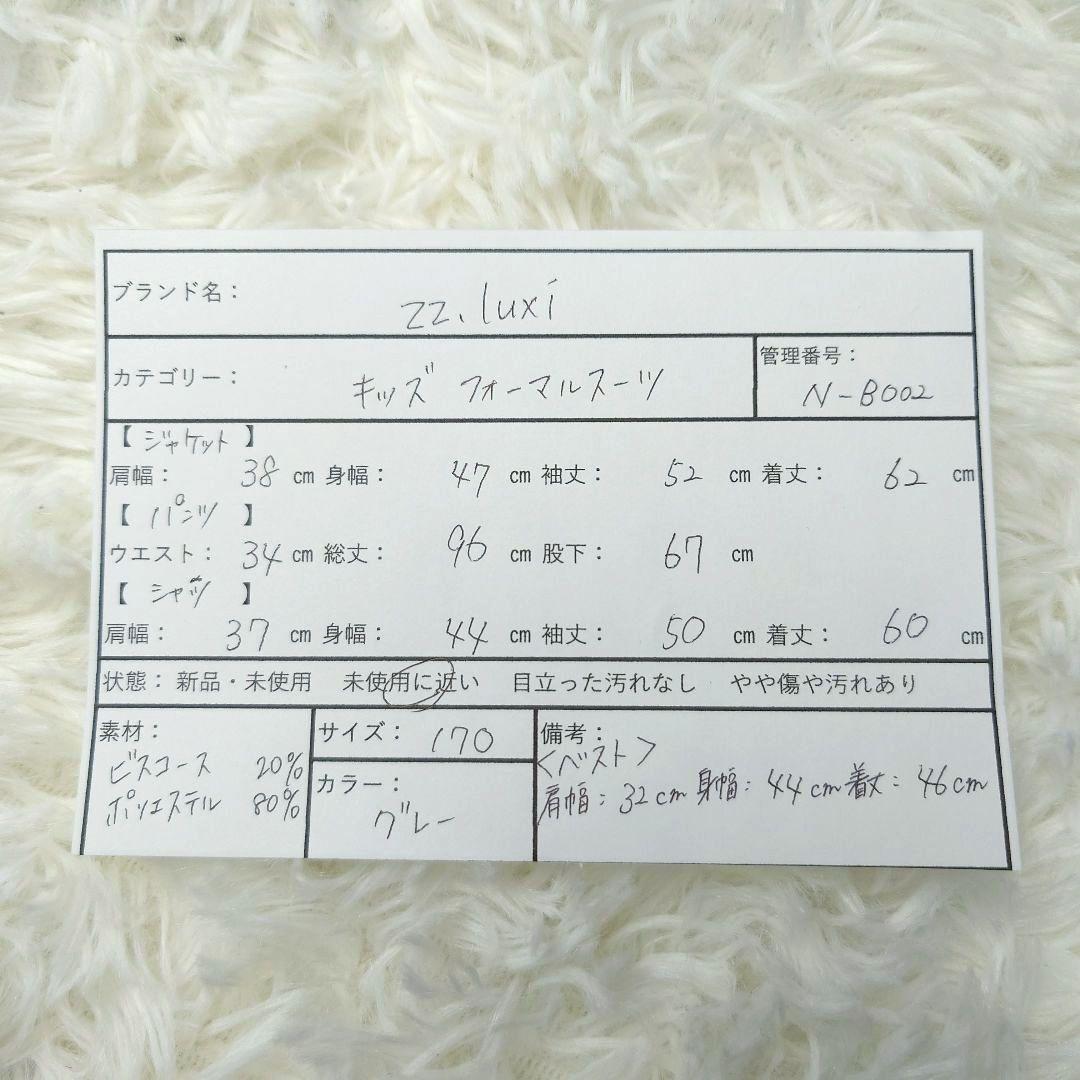 ブランド名： zz.luxi
カテゴリー： キッズ フォーマルスーツ
管理番号：
N-B002
【 ジャケット 】
肩幅： 38 cm 身幅： 47 cm 袖丈： 52 cm 着丈： 62 cm
【 パンツ 】
ウエスト： 34 cm 総丈： 96 cm 股下： 67 cm
【 シャツ 】
肩幅： 37 cm 身幅： 44 cm 袖丈： 50 cm 着丈： 60 cm
状態： 新品・未使用 未使用に近い 目立った汚れなし やや傷や汚れあり
素材：
ビスコース 20%
ポリエステル 80%
サイズ： 170
カラー：
グレー
備考：
＜ベスト＞
肩幅：32cm 身幅：44cm 着丈：46cm